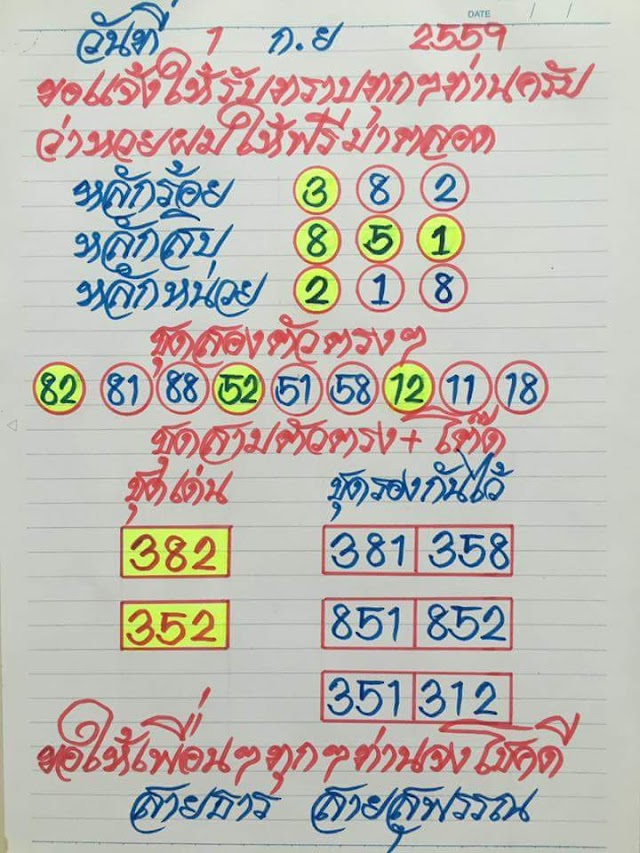 DATE / /
วันที่ 1 ก.ย 2559
ขอแจ้งให้รับทราบทุกๆท่านครับ
ว่าหวยผมให้ฟรีม่าตลอด
หลักร้อย 3 8 2
หลักสิบ 8 5 1
หลักหน่วย 2 1 8
ชุดสองตัวตรงๆ
82 81 88 52 51 58 12 11 18
ชุดสามตัวตรง+โต๊ด
ชุดเด่น ชุดรองกันไว้
382 381 358
352 851 852
351 312
ขอให้เพื่อนๆทุกๆท่านจงโชคดี
สายธาร สายสุพรรณ